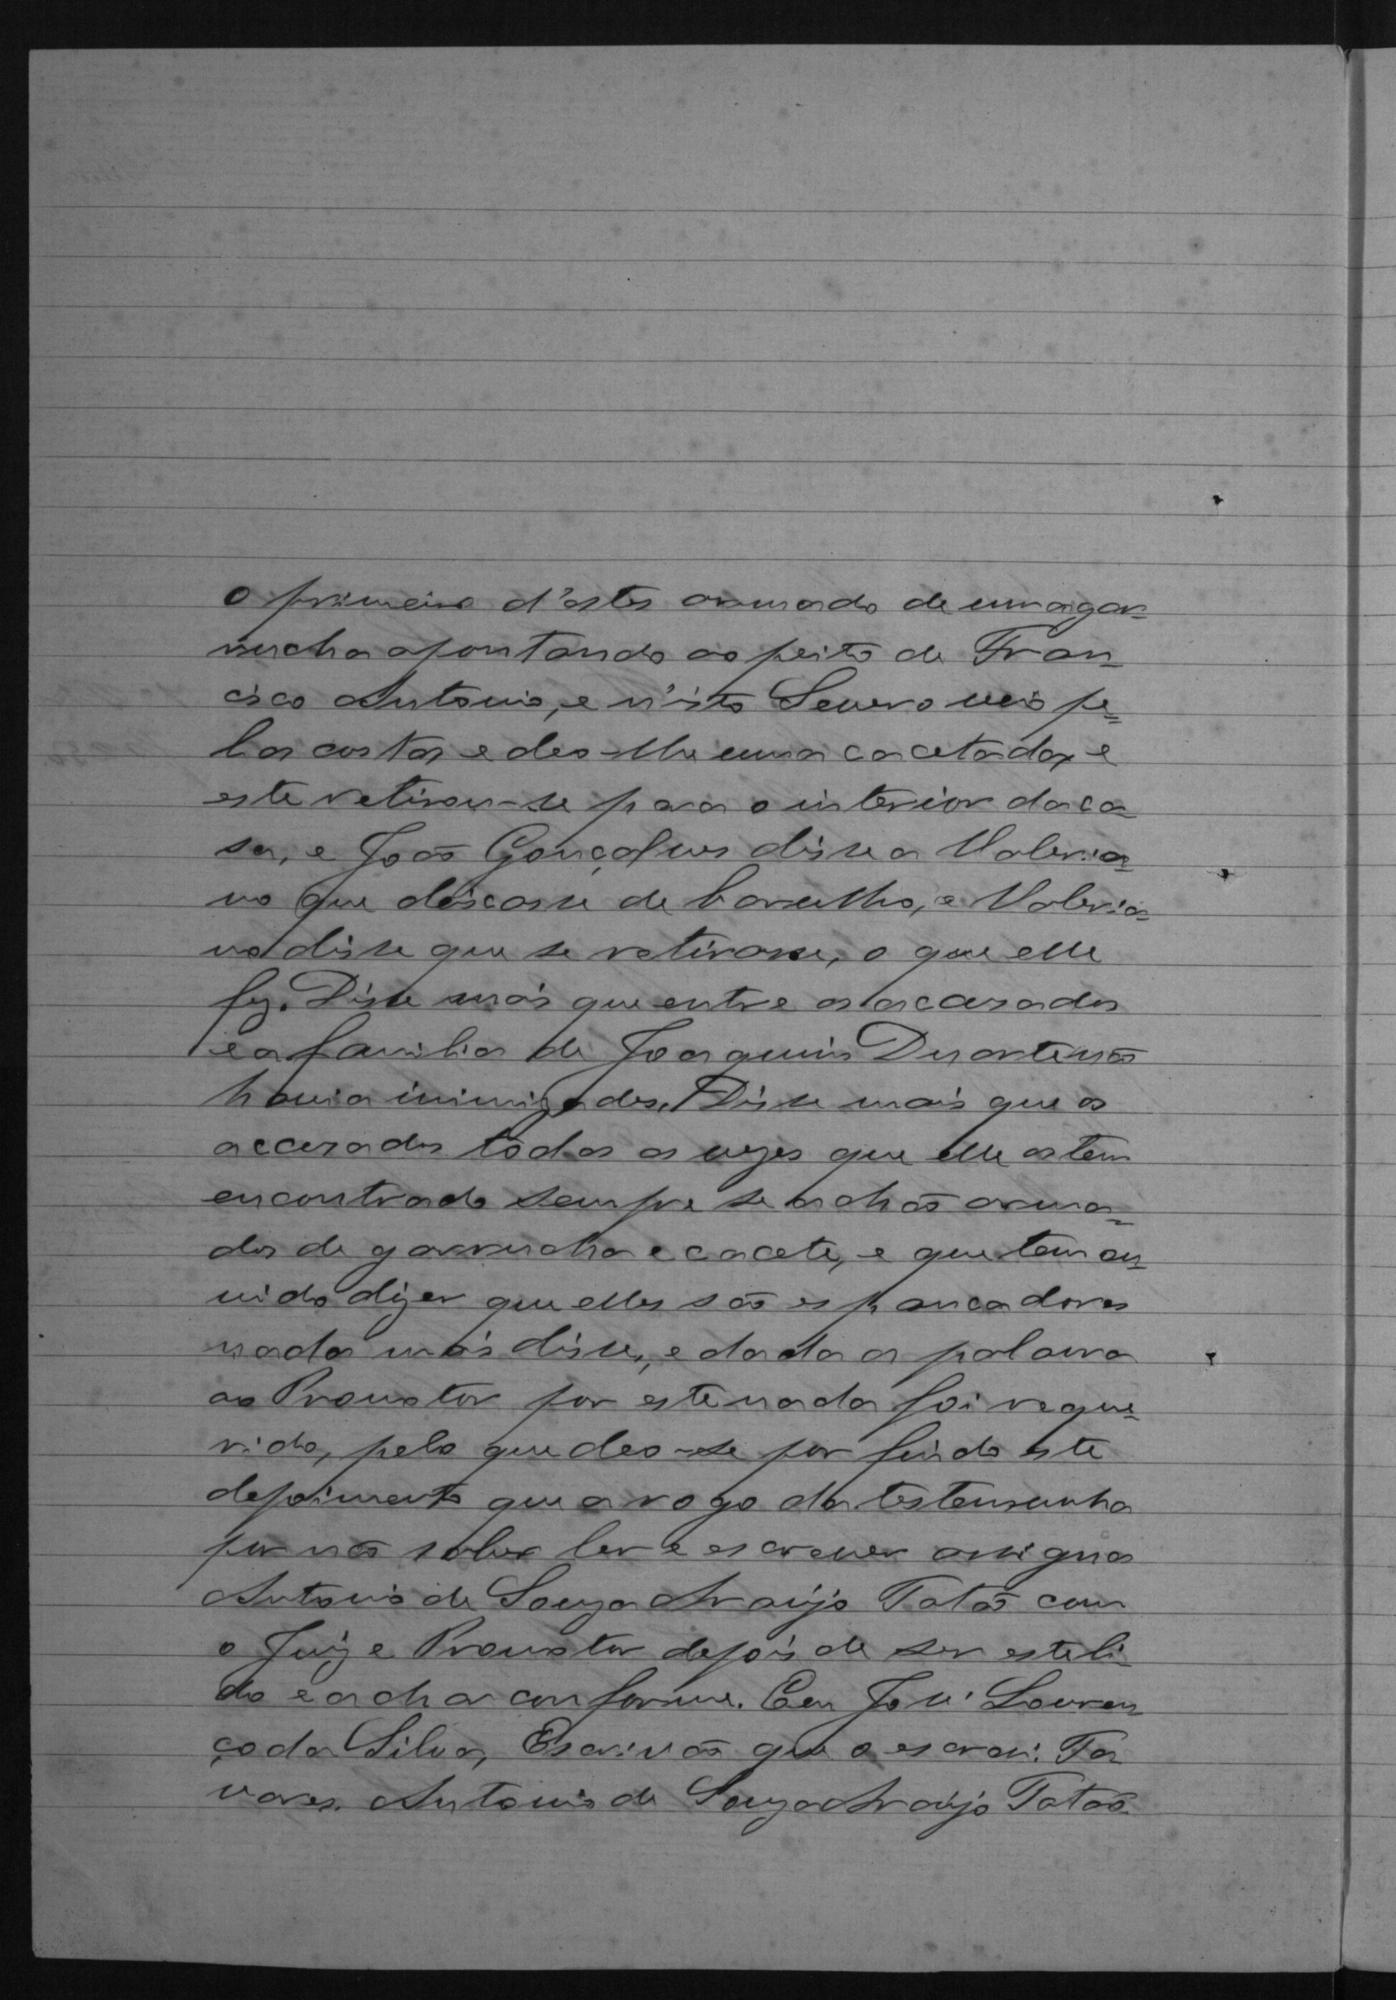 o primeiro d'estes armado de uma gar-
rucha apontando ao peito de Fran-
cisco Antonio, e n'isto Severo veio pe-
las costas e deo-lhe uma cacetada, e
este retirou-se para o interior da ca-
sa, e João Gonçalves disse a Valeria-
no que deixasse de barulho, e Valeria-
no disse que se retirasse, o que elle
fez. Disse mais que entre os accusados
e a familia de Joaquim Duarte não
havia inimizades. Disse mais que os
accusados todas as vezes que elle os tem
encontrado sempre se achão arma-
dos de garrucha e cacete, e que tem ou-
vido dizer que elles são espancadores
nada mais disse, e dada a palavra
ao Promotor por este nada foi reque-
rido, pelo que deo-se por findo este
depoimento que a rogo da testemunha
por não saber ler e escrever assigna
Antonio de Souza Araújo Tatão com
o Juiz e Promotor depois de ser este li-
do e achar conforme. Eu José Louren-
ço da Silva, Escrivão que o escrevi. Ta
vares. Antonio de Souza Araújo Tatão.